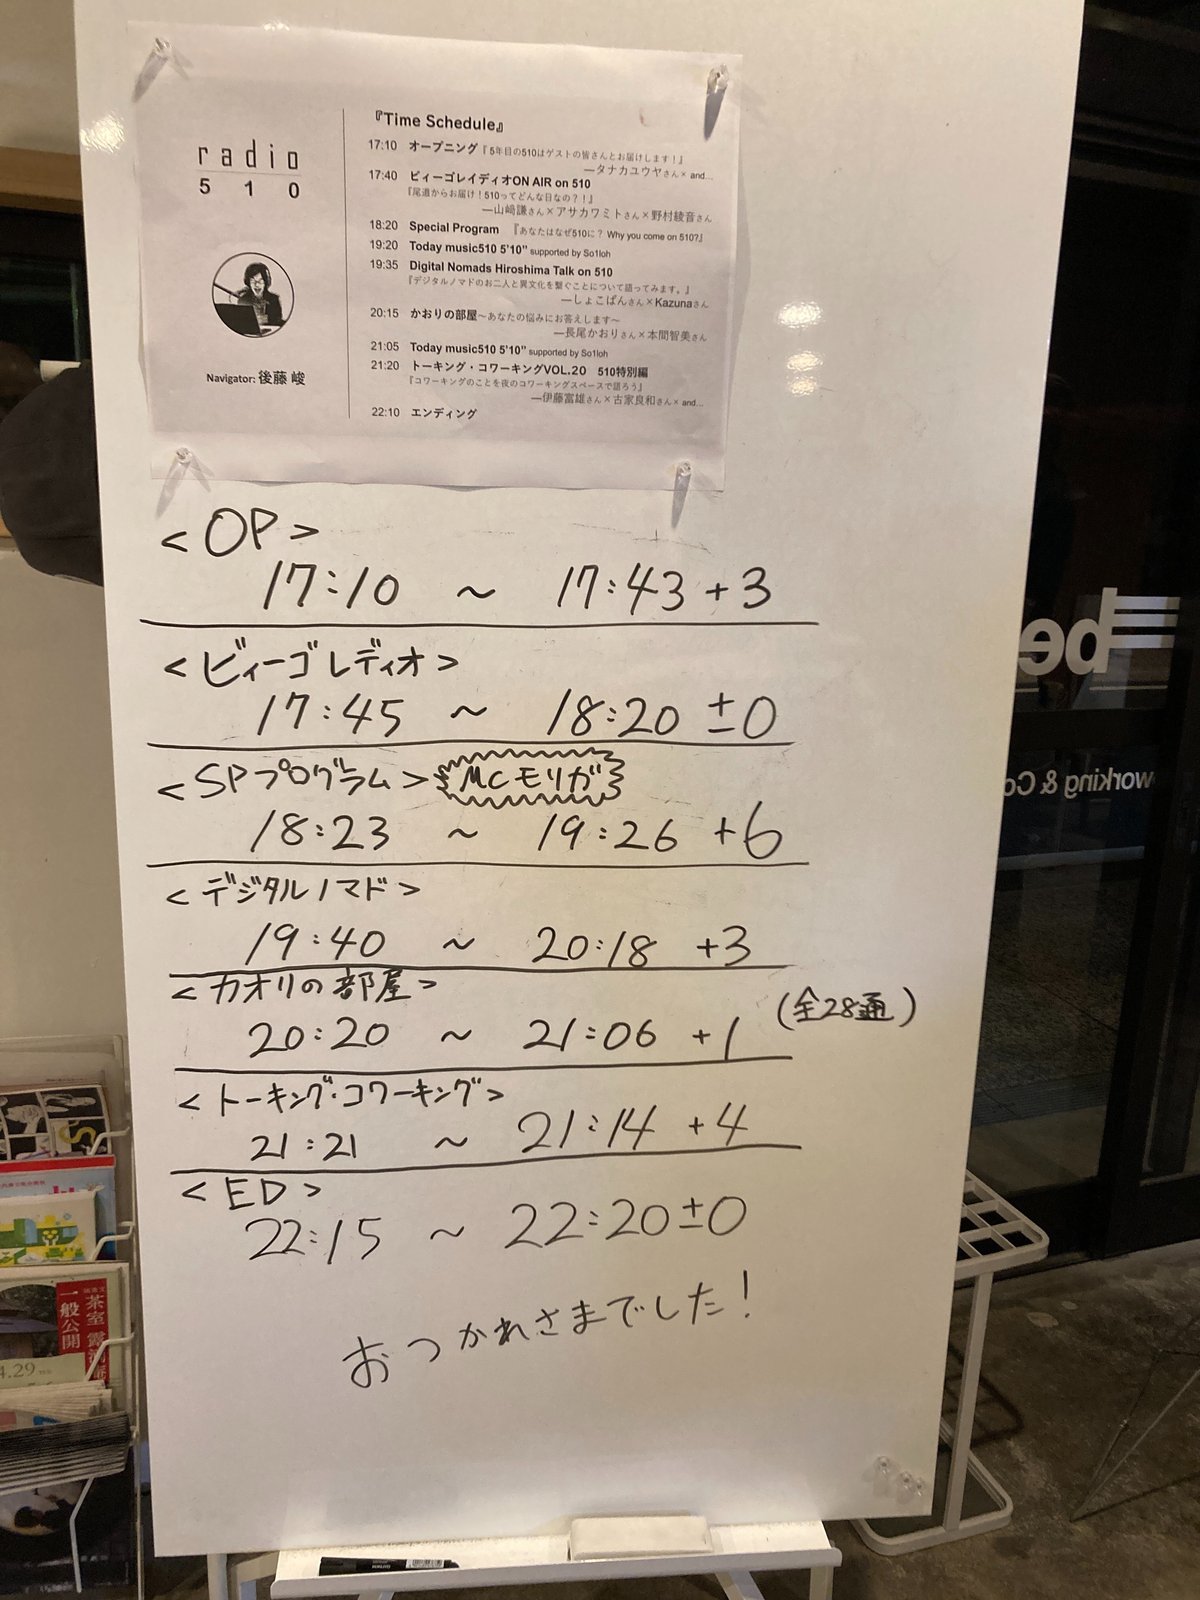 radio
510
Navigator: 後藤 峻
『Time Schedule』
17:10 オープニング『5年目の510はゲストの皆さんとお届けします！』
—タナカユウヤさん× and...
17:40 ビィーゴレイディオON AIR on 510
『尾道からお届け！510ってどんな日なの？！』
—山﨑謙さん×アサカワミトさん×野村綾音さん
18:20 Special Program 『あなたはなぜ510に？ Why you come on 510?』
19:20 Today music510 5'10" supported by So1loh
19:35 Digital Nomads Hiroshima Talk on 510
『デジタルノマドのお二人と異文化を繋ぐことについて語ってみます。』
—しょこぱんさん×Kazunaさん
20:15 かおりの部屋～あなたの悩みにお答えします～
—長尾かおりさん×本間智美さん
21:05 Today music510 5'10" supported by So1loh
21:20 トーキング・コワーキングVOL.20 510特別編
『コワーキングのことを夜のコワーキングスペースで語ろう』
—伊藤富雄さん×古家良和さん× and...
22:10 エンディング
<OP>
17:10 ~ 17:43 +3
<ビィーゴレディオ>
17:45 ~ 18:20 ±0
<SPプログラム> MCモリガ
18:23 ~ 19:26 +6
<デジタルノマド>
19:40 ~ 20:18 +3
<カオリの部屋>
20:20 ~ 21:06 +1 (全28通)
<トーキング・コワーキング>
21:21 ~ 21:14 +4
<ED>
22:15 ~ 22:20±0
おつかれさまでした！
be
working & Co
茶室
一般公開
4.29